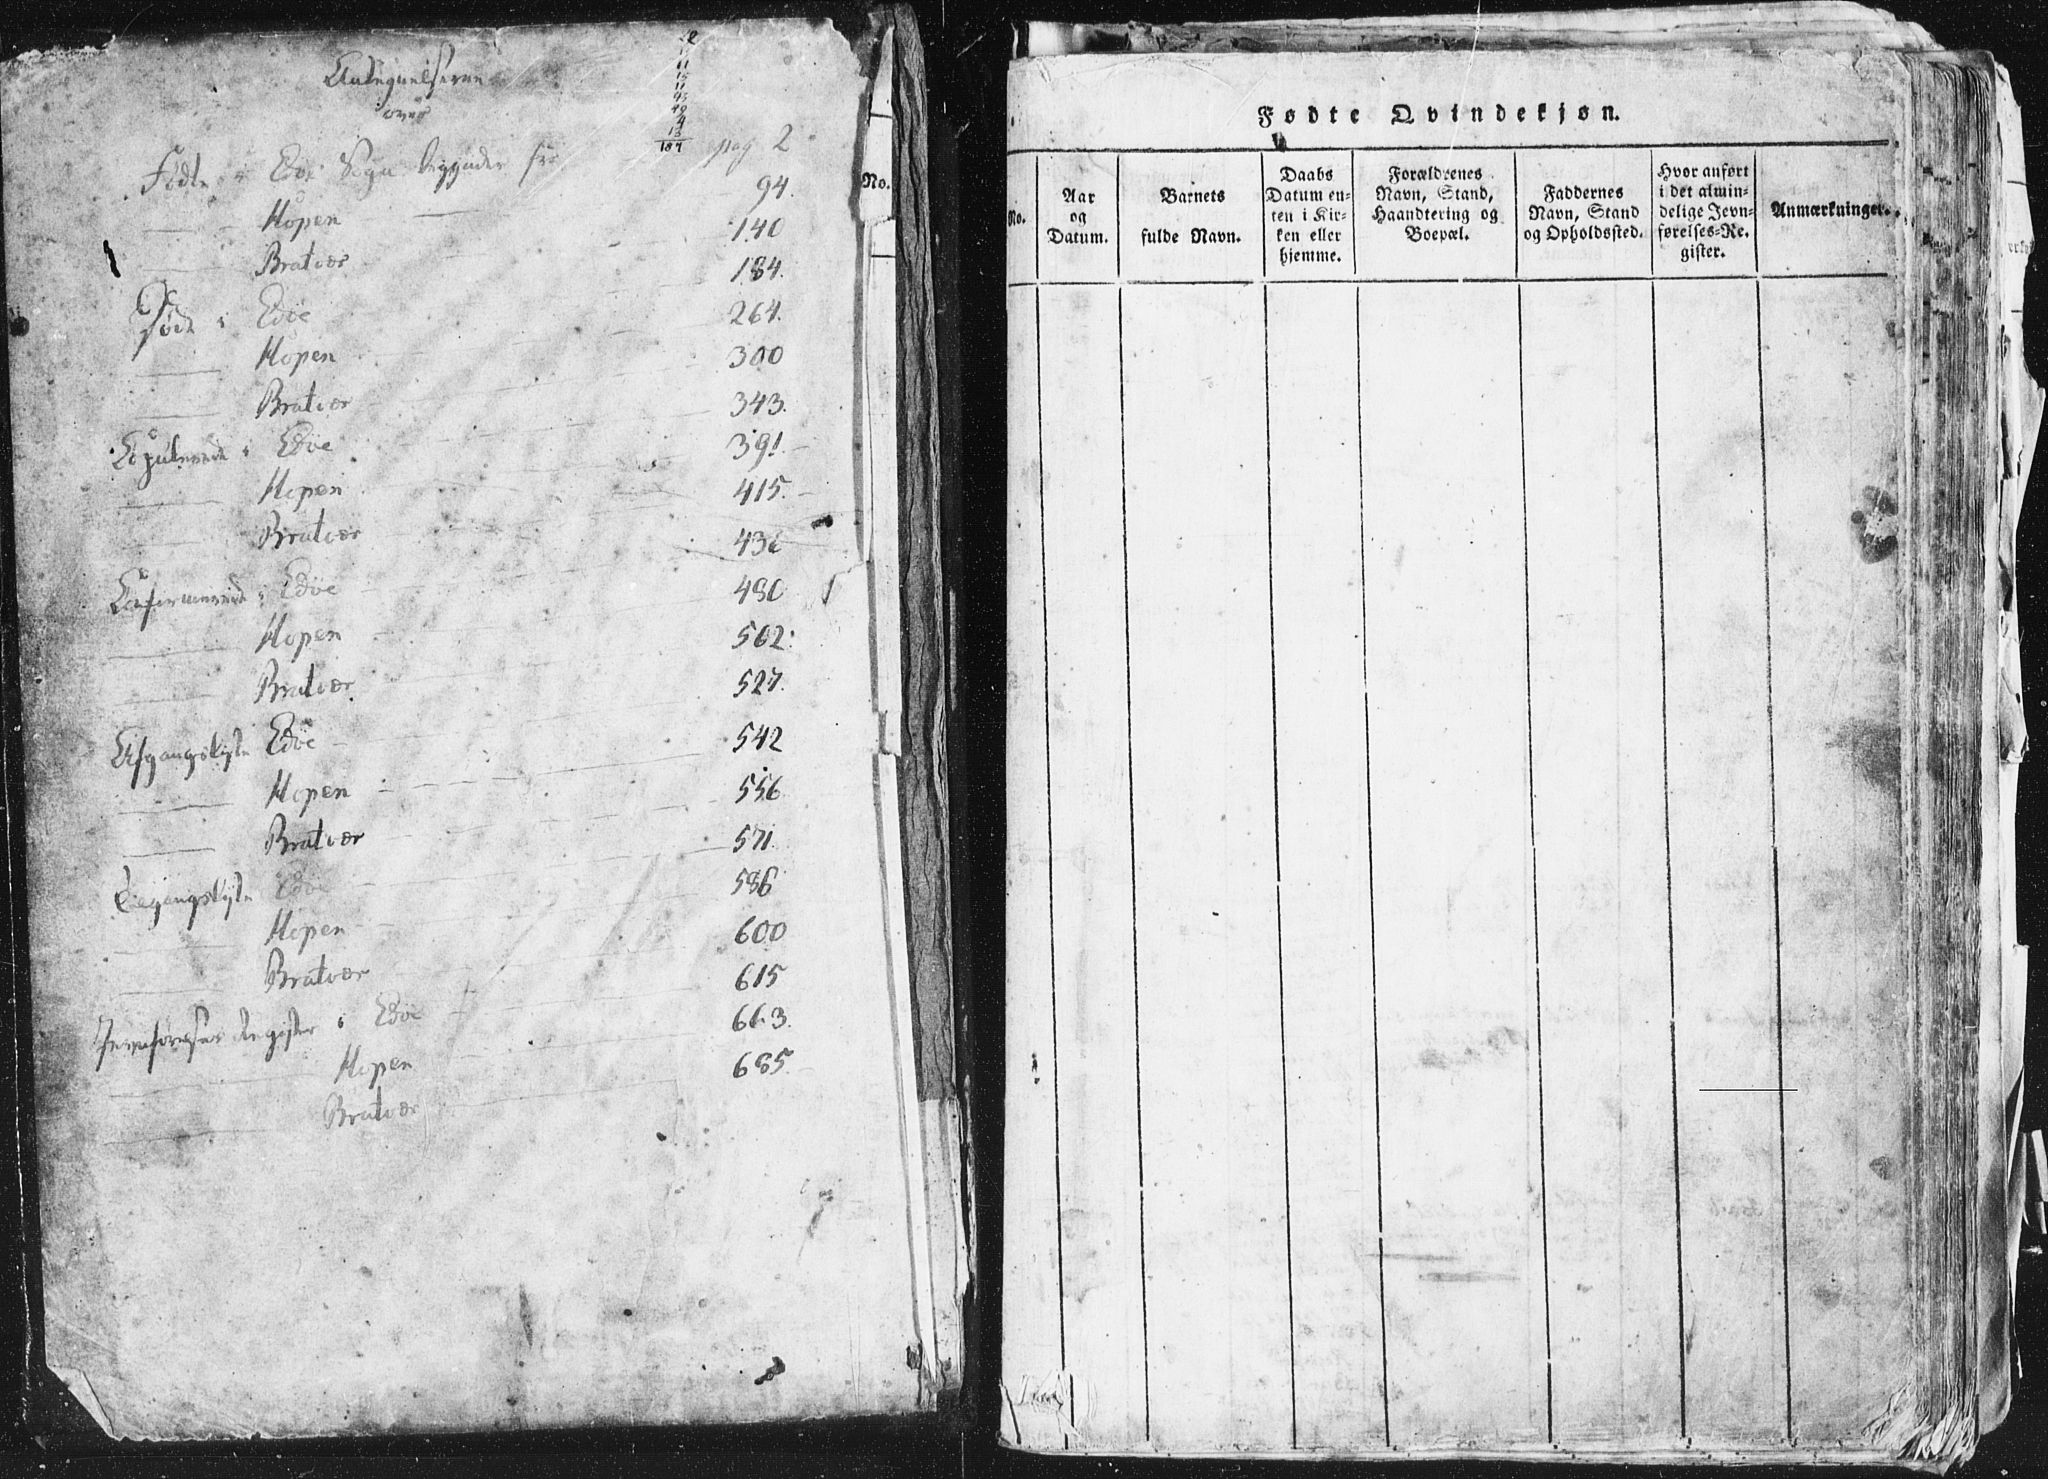 Antegnelserne
over
22
11
11
15
11
45
49
4
13
184
Fødte i Edöe Sogn begynder fra pag 2
Hopen 94.
Bratvær 140
184.
Døde i Edöe 264.
Hopen 300
Bratvær 343.
Copulerede i Edöe 391.
Hopen 415.
Bratvær 436
Confirmerede i Edöe 480
Hopen 502.
Bratvær 527.
Afgangsliste Edöe 542
Hopen 556
Bratvær 571.
Tilgangsliste Edöe 586
Hopen 600
Bratvær 615
Jevnførelses Register i Edöe 663.
Hopen 685.
Bratvær
No.
Fødte Qvindekjøn.
No.
Aar
og
Datum.
Barnets
fulde Navn.
Daabs
Datum en-
ten i Kir-
ken eller
hjemme.
Forældrenes
Navn, Stand,
Haandtering og
Boepæl.
Faddernes
Navn, Stand
og Opholdssted.
Hvor anført
i det almin-
delige Jevn-
førelses-Re-
gister.
Anmærkninger.